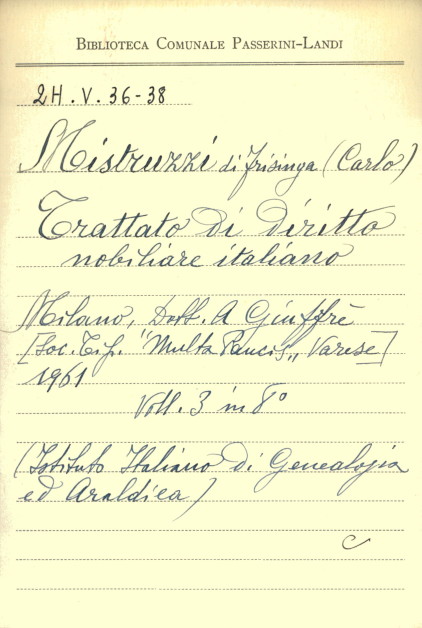 BIBLIOTECA COMUNALE PASSERINI-LANDI
2H.V. 36-38
Mistruzzi di Frisinga (Carlo)
Trattato di diritto
nobiliare italiano
Milano, Dott. A Giuffrè
[Soc. Tip. "Multa Paucis„ Varese]
1961
Voll. 3 in 8°
(Istituto Italiano di Genealogia
ed Araldica)
C